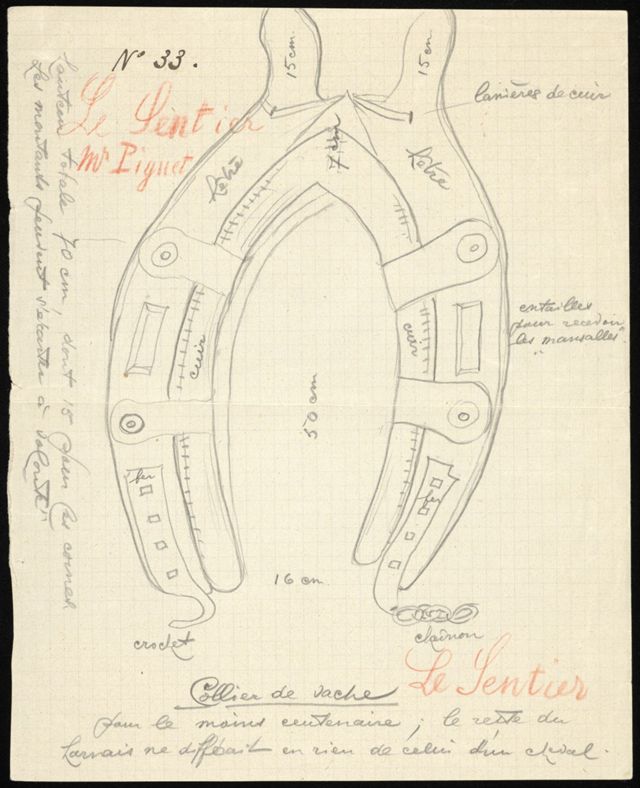 No 33.
15 cm
15 cm
lanières de cuir
Le Sentier
Mr Piguet
7 cm
hêtre
hêtre
Hauteur totale 70 cm, dont 15 pour les cornes
Les montants peuvent s'écarter à volonté
entailles
pour recevoir
les "mansalles"
cuir
cuir
50 cm
fer
fer
16 cm
crochet
chaînon
Le Sentier
Collier de vache
pour le moins centenaire; le reste du
harnais ne différait en rien de celui d'un cheval.